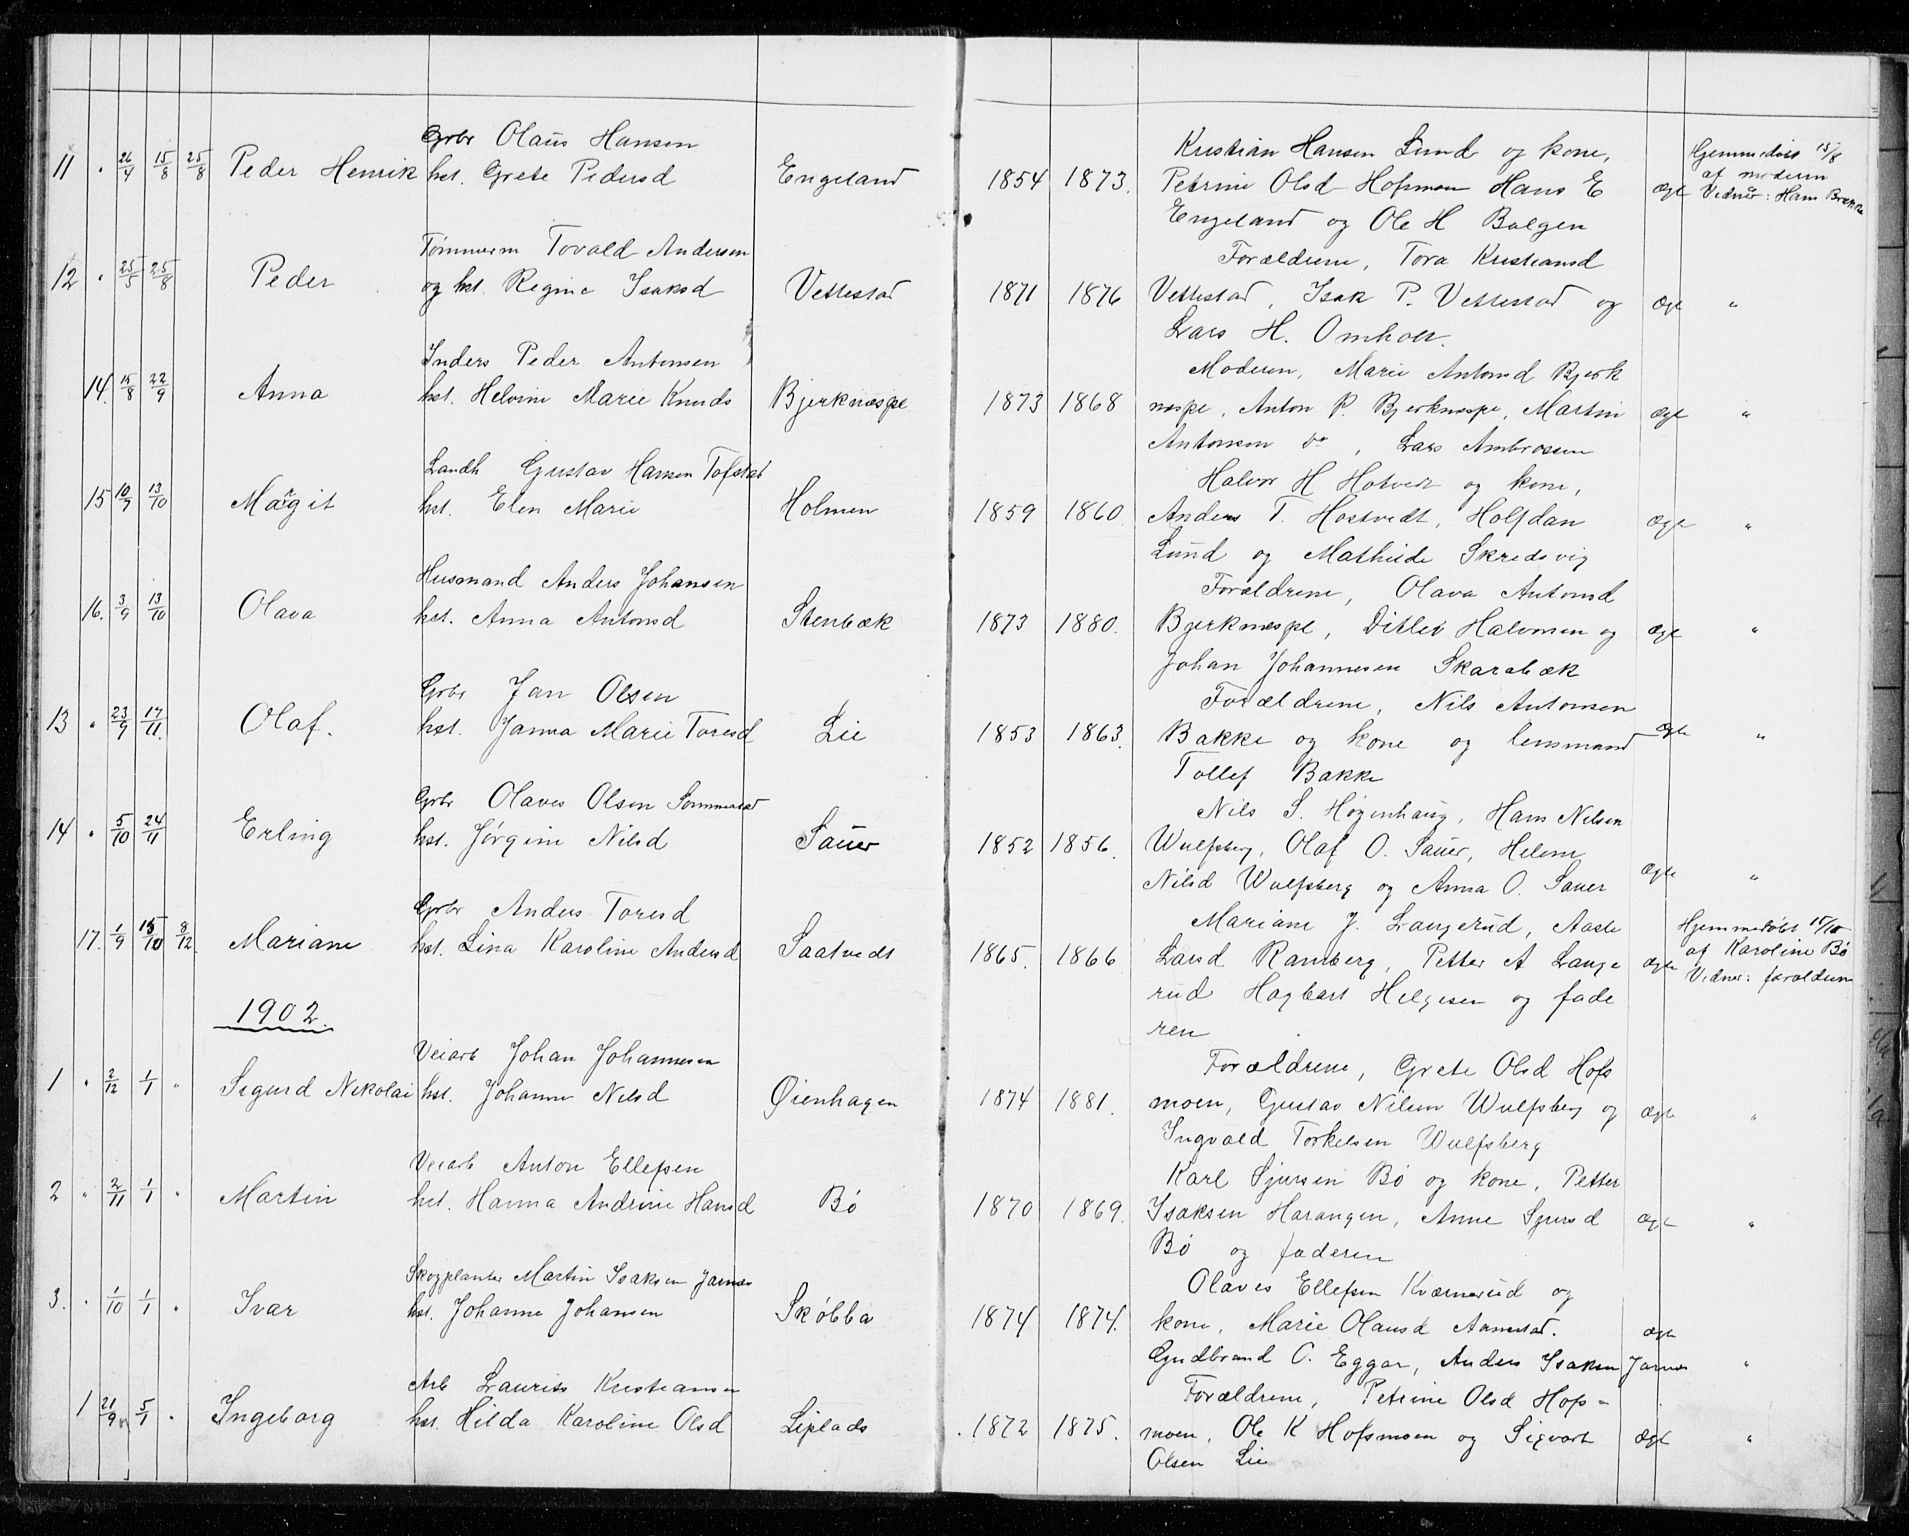 Gbr Olaus Hansen
11 " 26/4 15/8 25/8 Peder Henrik hst. Grete Pedersd Engeland
Tømmerm Tovald Andersen
12 " 25/5 25/8 Peder og hst. Regine Isaksd Vettestad
Inders Peder Antonsen
14. 15/8 22/9 Anna hst. Helvine Marie Knuds Bjerknæspe
Landh Gustav Hansen Tofstad
15 10/9 13/10 Margit hst. Elen Marie Holmen
Husmand Anders Johansen
16. 3/9 13/10 Olava hst. Anna Antonsd Stenbæk
Gbr Jan Olsen
13 " 23/9 17/11. Olaf. hst. Janna Marie Toresd Lie
Gbr Olaves Olsen
14 " 5/10 24/11 Erling hst. Jørgine Nilsd Sauer
Gbr Anders Toresd
17. 1/9 15/10 8/12. Mariane hst. Lina Karoline Andersd Saatvedt
1902.
Veiarb Johan Johannesen
1 " 2/12 1/1 " Sigurd Nikolai hst. Johanne Nilsd Øienhagen
Veiarb Anton Ellefsen
2 " 2/11 1/1 " Martin hst. Hanna Andrine Hansd Bø
Skogplanter Martin Isaksen Jarnes
3. " 1/10 1/1 " Ivar hst. Johanne Johansen Skøbba
Arb Laurits Kristiansen
1 21/9 5/1 " Ingeborg hst. Hilda Karoline Olsd Liplads
Kristian Hansen Lund og kone,
1854 1873. Petrine Olsd Hofsmoen Hans E
Engeland og Ole H Bolgen
ægte Hjemmedøbt 15/8
af moderen
Vidner: Hans
Forældrene, Tora Kristiansd
1871 1876 Vettestad, Isak P. Vettestad og ægte "
Lars H. Omholt.
Moderen, Marie Antonsd Bjerk
1873 1868 næspe, Anton P. Bjerknæspe, Martin ægte "
Antonsen do, Lars Ambrosen
Halvor H Hotvedt og kone,
1859 1860. Anders T. Hostvedt, Halfdan ægte "
Lund og Mathilde Skredsvig
Forældrene, Olava Antonsd
1873 1880. Bjerknæspe, Ditlev Halvorsen og ægte "
Johan Johannesen Skarabæk
Forældrene, Nils Antonsen
1853 1863. Bakke og kone og lensmand ægte "
Tollef Bakke
Nils S. Høgenhaug, Hans Nilsen
1852 1856. Wulfsberg, Olaf O. Sauer, Helene
Nilsd Wulfsberg og Anna O. Sauer ægte "
Mariane J. Langerud, Aaste
1865. 1866 Larsd Ramberg, Petter A Lange ægte
rud Hagbart Helgesen og fade
ren
Hjemmedøbt 15/10
af Karoline Bø
Vidner: forældrene
Forældrene, Grete Olsd Hofs
1874 1881. moen, Gustav Nilsen Wulfsberg og ægte "
Ingvald Torkelsen Wulfsberg
Karl Sjursen Bø og kone, Petter
1870 1869. Isaksen Harangen, Anne Sjursd ægte "
Bø og faderen
Olaves Ellefsen Kværnerud og
1874 1874. kone, Marie Olausd Aamestad. ægte
Gudbrand O. Eggar, Anders Isaksen Jarnes "
Forældrene, Petrine Olsd Hofs-
1872 1875. moen, Ole K Hofsmoen og Sigvart ægte "
Olsen Lie